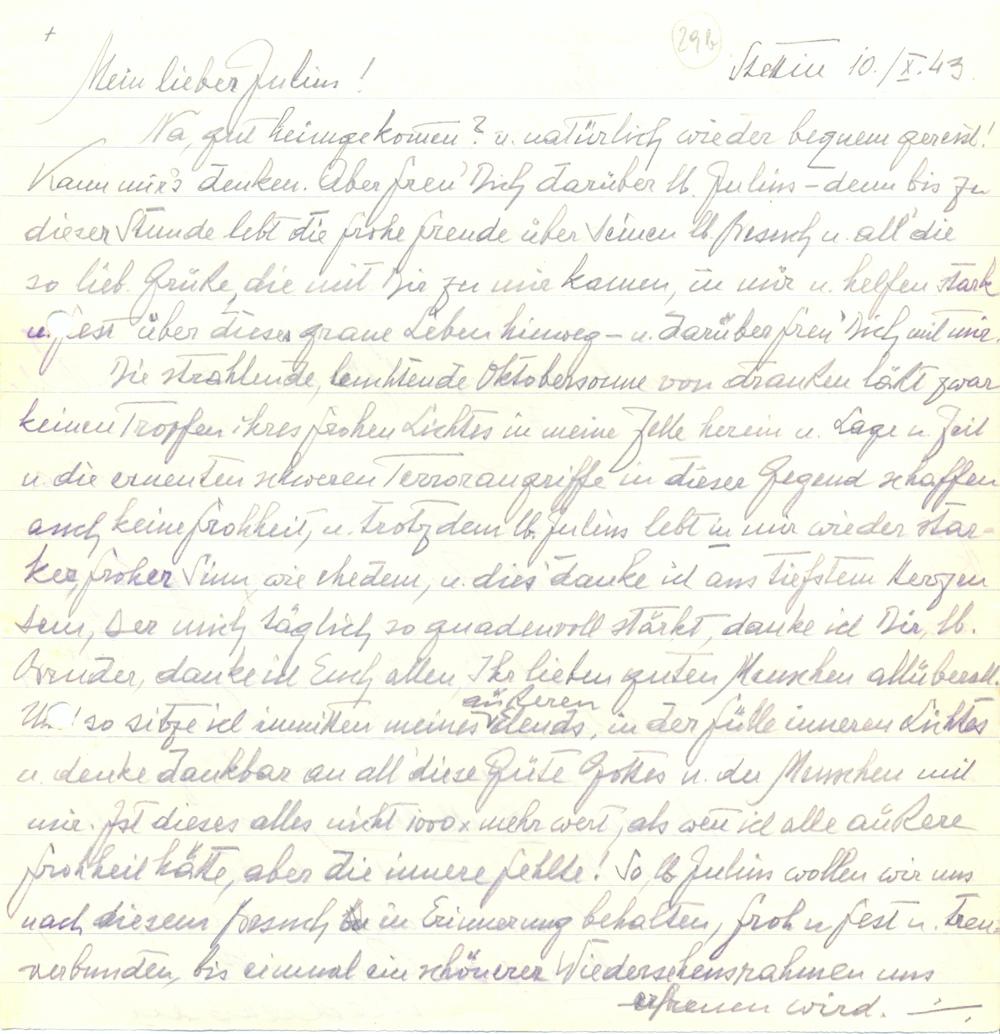 +
29b
Stettin 10./X.43
Mein lieber Julius!
Na, gut heimgekommen? u. natürlich wieder bequem gereist!
Kann mir's denken. Aber freu' Dich darüber lb. Julius – denn bis zu
dieser Stunde lebt die frohe Freude über Deinen lb. Besuch u. all' die
so lieb. Grüße, die mit Dir zu mir kamen, in mir u. helfen stark
u. fest über dieses graue Leben hinweg – u. darüber freu' Dich mit mir.
Die strahlende, leuchtende Oktobersonne von draußen läßt zwar
keinen Tropfen ihres frohen Lichtes in meine Zelle herein u. Lage u. Zeit
u. die erneuten schweren Terrorangriffe in dieser Gegend schaffen
auch keine Frohheit, u. trotzdem lb. Julius lebt in mir wieder star-
ker, froher Sinn, wie ehedem, u. dies danke ich aus tiefstem Herzen
Dem, Der mich täglich so gnadenvoll stärkt, danke ich Dir, lb.
Bruder, danke ich Euch allen, Ihr lieben guten Menschen allüberall.
so sitze ich inmitten meines äußeren Elends, in der Fülle inneren Lichtes
u. denke dankbar an all' diese Güte Gottes u. der Menschen mit
mir. Ist dieses alles nicht 1000x mehr wert, als wenn ich alle äußere
Frohheit hätte, aber die innere fehlte! So, lb. Julius wollen wir uns
nach diesem Besuch in Erinnerung behalten, froh u. fest u. treu
verbunden, bis einmal ein schönerer Wiedersehensrahmen uns
erfreuen wird. –.–